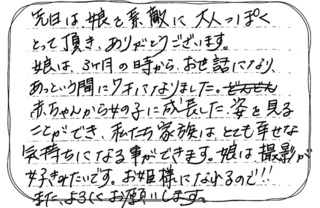 先日は、娘を素敵に大人っぽく
とって頂き、ありがとうございます。
娘は、3ヶ月の時から、お世話になり、
あっという間に7才になりました。
赤ちゃんから女の子に成長した姿を見る
ことができ、私たち家族は、とても幸せな
気持ちになる事ができます。娘は、撮影が
好きみたいです。お姫様になれるので!!
また、よろしくお願いします。